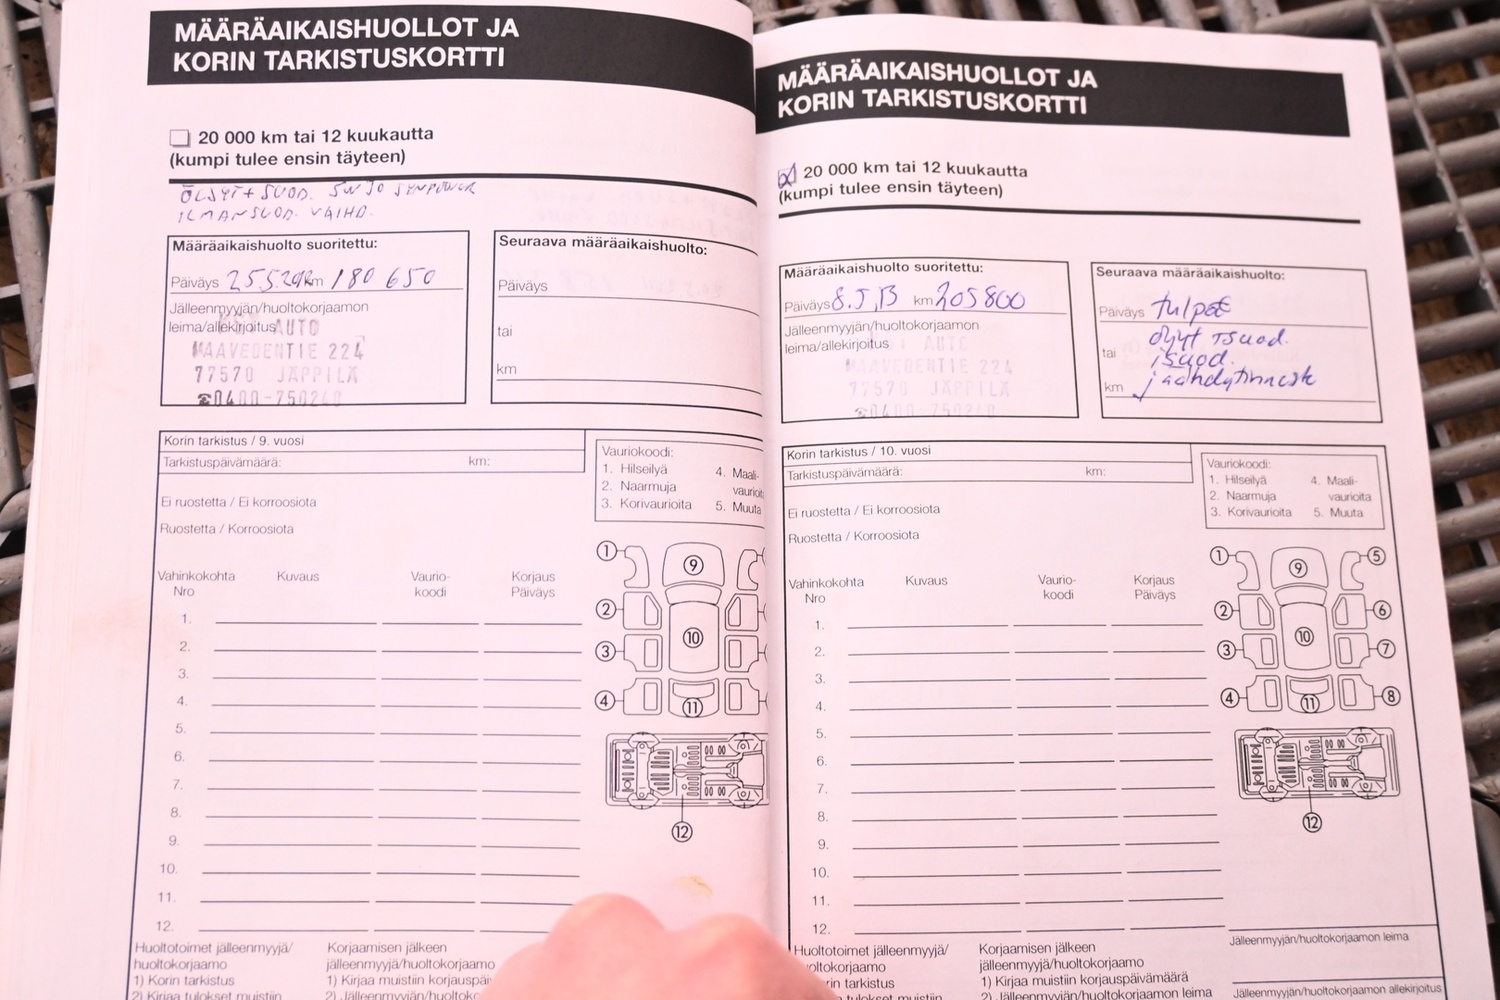 MÄÄRÄAIKAISHUOLLOT JA
KORIN TARKISTUSKORTTI
20 000 km tai 12 kuukautta
(kumpi tulee ensin täyteen)
ÖLJYT + SUOD. 5W30
ILMANSUOD. VAIHD.
Määräaikaishuolto suoritettu:
Päiväys 25.5. km 180 650
Jälleenmyyjän/huoltokorjaamon
leima/allekirjoitus
AUTO
MAAVEDENTIE 224
77570 JÄPPILÄ
☎0400-750240
Seuraava määräaikaishuolto:
Päiväys
tai
km
Korin tarkistus / 9. vuosi
Tarkistuspäivämäärä: km:
Ei ruostetta / Ei korroosiota
Ruostetta / Korroosiota
Vauriokoodi:
1. Hilseilyä 4. Maali-
2. Naarmuja vaurioit
3. Korivaurioita 5. Muuta
Vahinkokohta Kuvaus Vaurio- Korjaus
Nro koodi Päiväys
1.
2.
3.
4.
5.
6.
7.
8.
9.
10.
11.
12.
1
2
3
4
9
10
11
12
Huoltotoimet jälleenmyyjä/
huoltokorjaamo
1) Korin tarkistus
2) Kirjaa tulokset muistiin
Korjaamisen jälkeen
jälleenmyyjä/huoltokorjaamo
1) Kirjaa muistiin korjauspäi
2) Jälleenmyyjän/huoltoko
MÄÄRÄAIKAISHUOLLOT JA
KORIN TARKISTUSKORTTI
20 000 km tai 12 kuukautta
(kumpi tulee ensin täyteen)
Määräaikaishuolto suoritettu:
Päiväys 8.5.13 km 205800
Jälleenmyyjän/huoltokorjaamon
leima/allekirjoitus
AUTO
MAAVEDENTIE 224
77570 JÄPPILÄ
☎0400-750240
Seuraava määräaikaishuolto:
Päiväys tulpat
öljyt + suod.
tai isuod.
km jäähdytinneste
Korin tarkistus / 10. vuosi
Tarkistuspäivämäärä: km:
Ei ruostetta / Ei korroosiota
Ruostetta / Korroosiota
Vauriokoodi:
1. Hilseilyä 4. Maali-
2. Naarmuja vaurioita
3. Korivaurioita 5. Muuta
Vahinkokohta Kuvaus Vaurio- Korjaus
Nro koodi Päiväys
1.
2.
3.
4.
5.
6.
7.
8.
9.
10.
11.
12.
1
2
3
4
5
6
7
8
9
10
11
12
Huoltotoimet jälleenmyyjä/
oltokorjaamo
rin tarkistus
a tulokset muistiin
Korjaamisen jälkeen
jälleenmyyjä/huoltokorjaamo
1) Kirjaa muistiin korjauspäivämäärä
2) Jälleenmyyjän/huoltokorjaamon leima
Jälleenmyyjän/huoltokorjaamon leima
Jälleenmyyjän/huoltokorjaamon allekirjoitus